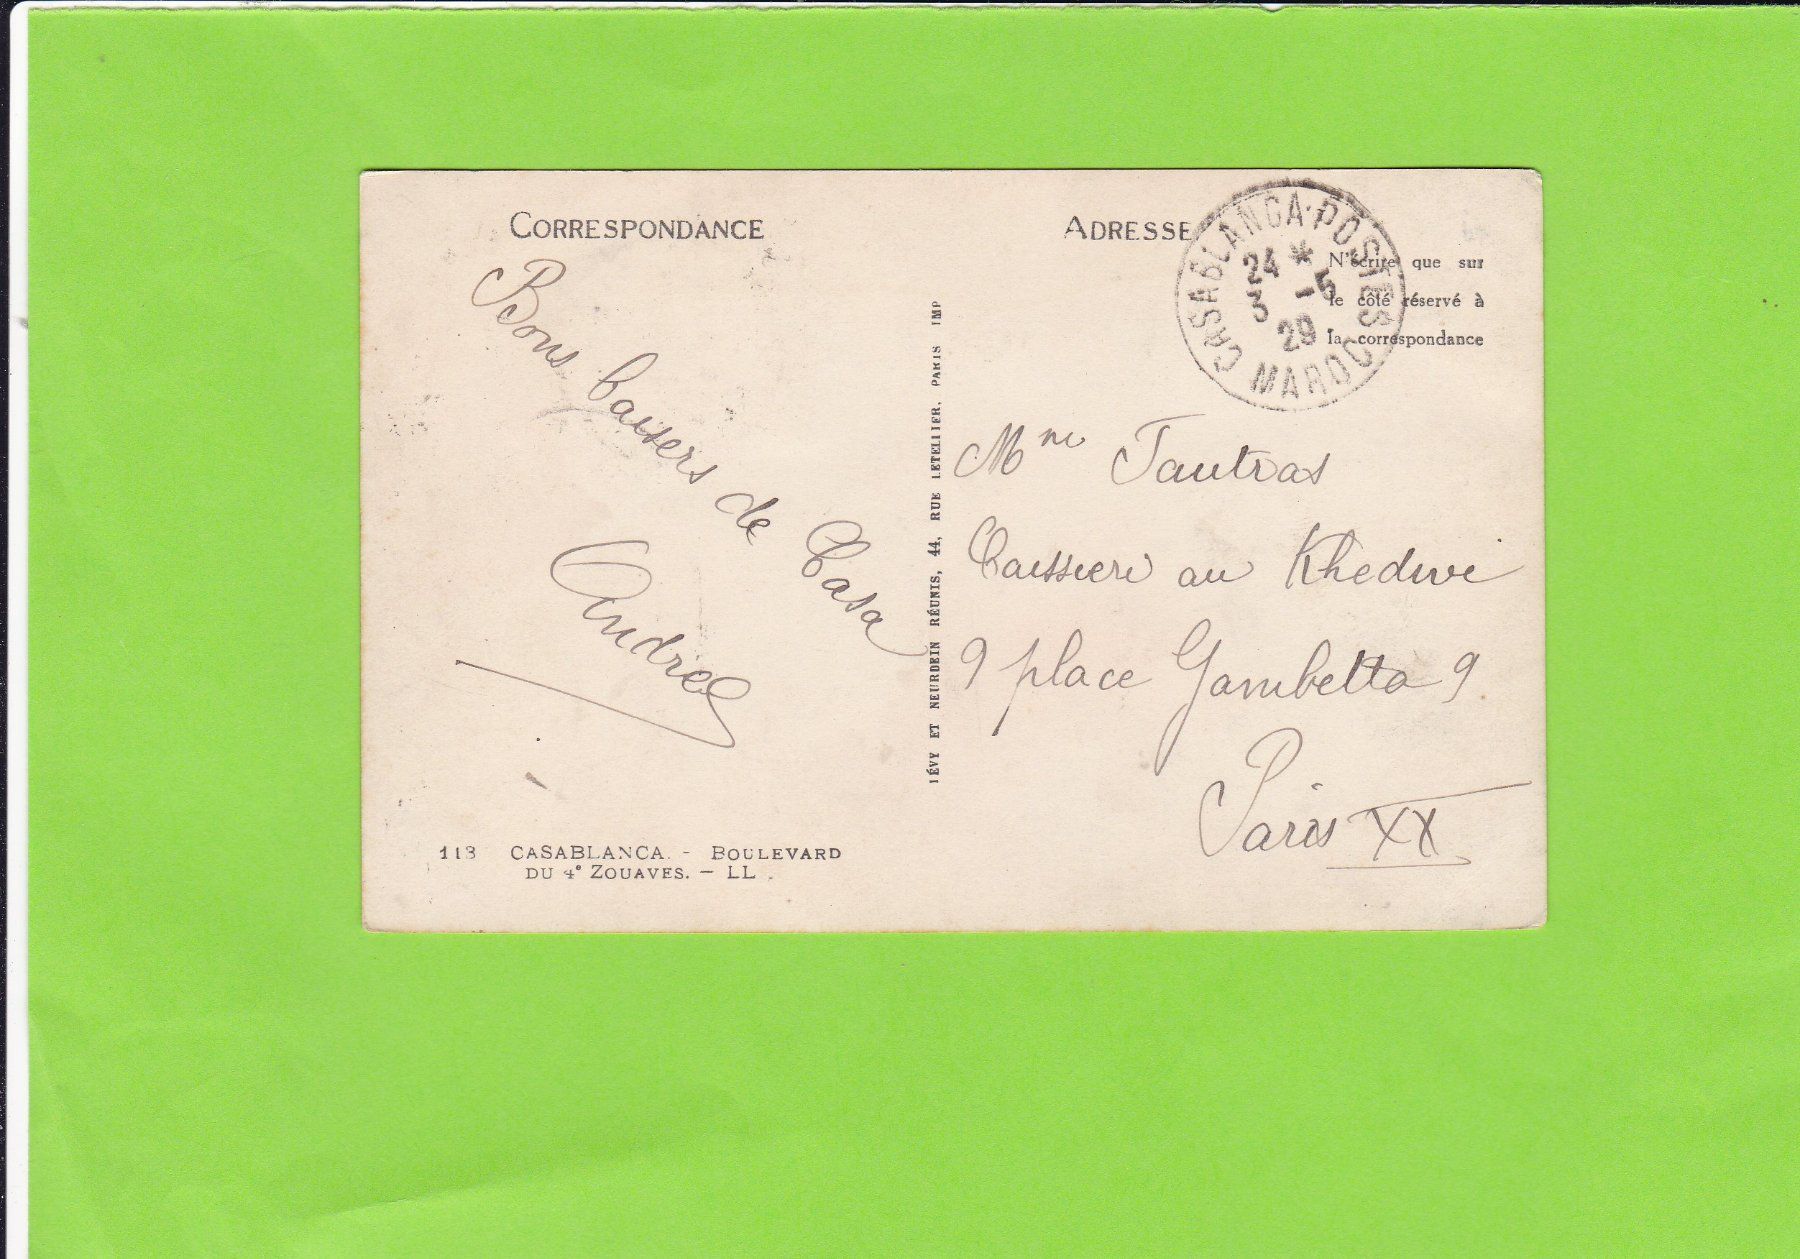 CORRESPONDANCE
Bons baisers de Casa
Andrée
113 CASABLANCA. - BOULEVARD
DU 4e ZOUAVES. - LL
LÉVY ET NEURDEIN RÉUNIS, 44, RUE LETELLIER, PARIS IMP
ADRESSE
N'écrire que sur
le côté réservé à
la correspondance
CASABLANCA-POSTES
24 *
3 -5
29
MAROC
Mme Tautras
Caissiere au Khedive
9 place Gambetta 9
Paris XX